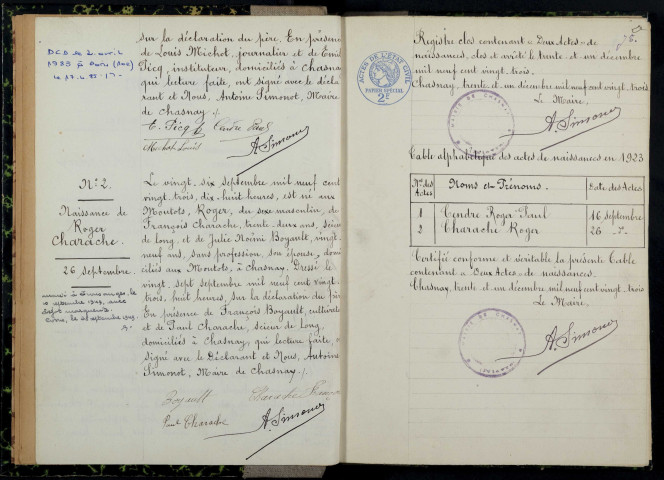 sur la déclaration du père. En présence
de Louis Michot, journalier et de Emile
Picq, instituteur, domiciliés à Chasnay
qui lecture faite, ont signé avec le décla
rant et Nous, Antoine Simonot, Maire
de Chasnay ./.
E. Picq Cendre Paul
Michot Louis
A. Simonot
N° 2
Naissance de
Roger
Charache.
26 septembre
Le vingt, six septembre mil neuf cent
vingt, trois, dix huit heures, est né aux
Moutots, Roger, du sexe masculin, de
François Charache, trente deux ans, scieur
de long, et de Julie Noémi Boyault, vingt
neuf ans, sans profession, son épouse, domi
ciliés aux Moutots, à Chasnay. Dressé le
vingt, sept septembre mil neuf cent vingt
trois, huit heures, sur la déclaration du père
En présence de François Boyault, cultivateur
et de Paul Charache, scieur de long,
domiciliés à Chasnay, qui lecture faite, ont
signé avec le Déclarant et Nous, Antoine
Simonot, Maire de Chasnay ./.
Boyault Charache
Paul Charache
A. Simonot
76.
Registre clos contenant "Deux Actes" de
naissances, clos et arrêté le trente et un décembre
mil neuf cent vingt, trois.
Chasnay, trente et un décembre mil neuf cent vingt, trois
Le Maire.
A. Simonot
ACTES DE L'ÉTAT CIVIL
PAPIER SPÉCIAL
2E
Table alphabétique des actes de naissances en 1923
Nos des Actes Noms et Prénoms. Date des Actes
1 Cendre Roger Paul 16 septembre
2 Charache Roger 26 -d°-
Certifié conforme et véritable la présente Table
contenant "Deux Actes" de naissances.
Chasnay, trente et un décembre mil neuf cent vingt, trois
Le Maire.
A. Simonot